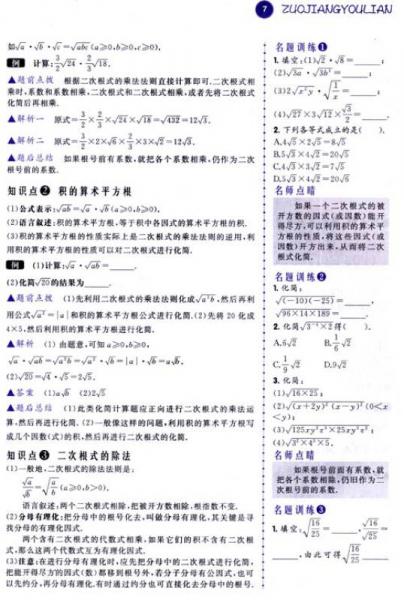 7 ZUOJIANGYOULIAN
如√a·√b·√c=√abc(a≥0,b≥0,c≥0).
例 计算:3/2√24·2/3√18.
▲题前点拨 根据二次根式的乘法法则直接计算即可.二次根式相
乘时,系数和系数相乘,二次根式和二次根式相乘,或者先将二次根式
化简后再相乘.
▲解析一 原式=3/2×2/3×√24×√18=√432=12√3.
▲解析二 原式=3/2×2√6×2/3×3√2=12√3.
▲题后总结 如果根号前有系数,就把各个系数相乘,仍作为二次
根号前的系数.
知识点❷ 积的算术平方根
(1)公式表示:√ab=√a·√b(a≥0,b≥0).
(2)语言叙述:积的算术平方根,等于积中各因式的算术平方根的积.
(3)积的算术平方根的性质实际上是二次根式的乘法法则的逆用,利
用积的算术平方根的性质可以对二次根式进行化简.
例 (1)计算:√a·√ab=______.
(2)化简√20的结果为______.
▲题前点拨 (1)先利用二次根式的乘法法则化成√a²b,然后再利
用公式√a²=|a|和积的算术平方根公式进行化简.(2)先将20化成
4×5,然后利用积的算术平方根进行化简.
▲解析 (1)由题意,可知a≥0,b≥0,
√a·√ab=√a²b=√a²·√b=|a|·√b=a√b.
(2)√20=√4·√5=2√5.
▲答案 (1)a√b (2)2√5
▲题后总结 (1)此类化简计算题应正向进行二次根式的乘法运
算,然后再进行化简.(2)一般像这样的问题,利用积的算术平方根写
成几个因数(式)的积,然后再进行二次根式的化简.
知识点❸ 二次根式的除法
(1)一般地,二次根式的除法法则是:
√a/√b=√(a/b)(a≥0,b>0).
语言叙述:两个二次根式相除,把被开方数相除,根指数不变.
(2)分母有理化:把分母中的根号化去,叫做分母有理化,其关键是寻
找分母的有理化因式.
两个含有二次根式的代数式相乘,如果它们的积不含有二次根
式,那么这两个代数式互为有理化因式.
(3)注意:在进行分母有理化时,应先把分母中的二次根式进行化简,
把能开得尽方的因式(数)都移到根号外,若分子分母有公因式,也可
以先约分,再分母有理化.有时通过约分也可直接化去分母中的根号.
名题训练❶
1. 填空:(1)√2·√8=______;
(2)√3a·√3b³=______;
(4)√27×3√12×√3/2=______.
2. 下列各等式成立的是( ).
A.4√5×2√5=8√5
B.5√3×4√2=20√5
C.4√3×3√2=7√5
D.5√3×4√2=20√6
名师点睛
如果一个二次根式的被
开方数的因式(或因数)能开
得尽方,可以利用积的算术平
方根的性质,将这些因式(或
因数)开方出来,从而将二次
根式化简.
名题训练❷
1. 化简:
√(-10)(-25)=______,
√96×14×189=______.
2. 化简√3⁻¹×2得( ).
A.6√2 B.1/6√2
C.1/9√2 D.9√2
3. 化简:
(1)√16×25;
(2)√(x+2y)²(x-y)²(0<x
<y);
名师点睛
如果根号前面有系数,就
把各个系数相除,仍旧作为二
次根号前的系数.
名题训练❸
1. 填空:√16/25=______,√16/√25=
______,由此可得√16/25______